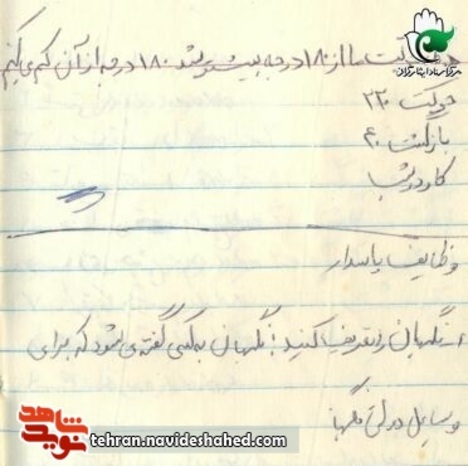 حرکت ما از ۱۸۰ درجه بیشتر شد ۱۸۰ درجه از آن کم می کنیم
حرکت ۲۲۰
بازگشت ۴۰
کار در شب
وظایف پاسدار
۱- نگهبان را تعریف کنید؟ نگهبان به کسی گفته می شود که برای
وسایل دولتی نگهبا
مرکز اسناد ایثارگران
شاهد
نوید
tehran.navideshahed.com